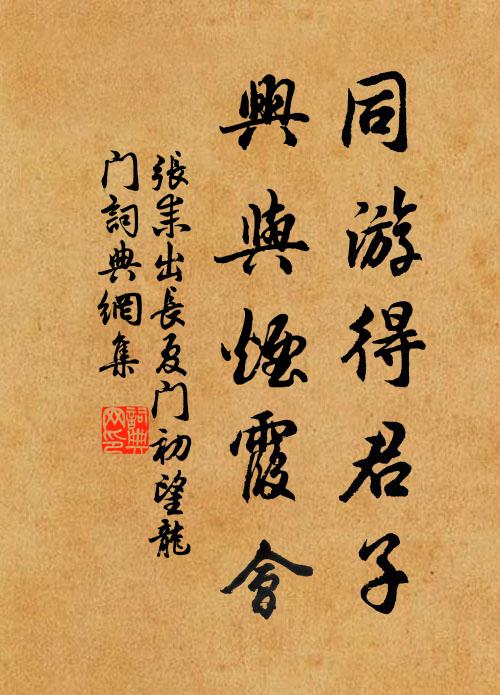 同游得君子
興與煙霞會
張耒出長夏门初望龍
门詞典網集
詞典
网印